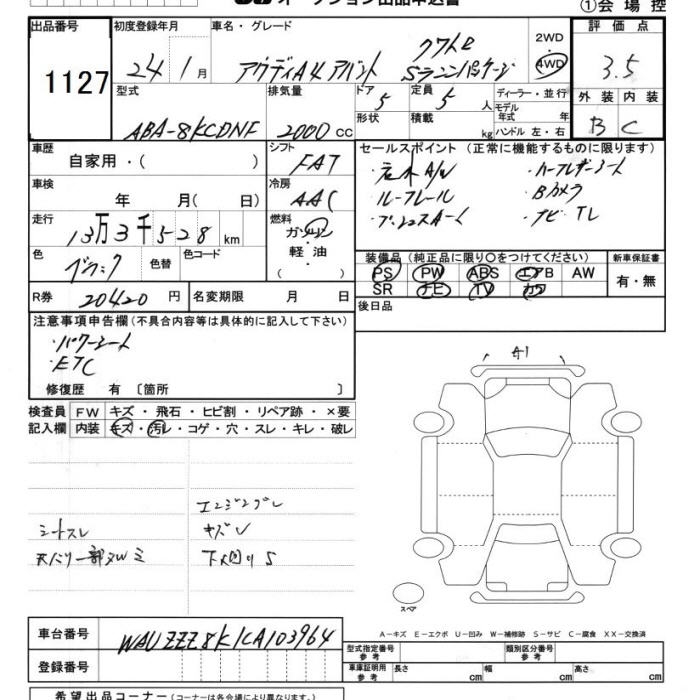 オークション出品申込書
①会場控
出品番号
1127
初度登録年月
24年1月
車名・グレード
クワトロ
アウディA4 アバント Sラインパッケージ
2WD
4WD
評価点
3.5
外装 内装
B C
型式
ABA-8KCDNF
排気量
2000 cc
ドア
5
定員
5 人
形状
積載
kg
ディーラー・並行
モデル年式 年
ハンドル 左・右
車歴
自家用・( )
シフト
FAT
車検
年 月( 日)
冷房
AAC
走行
13万3千528 km
燃料
ガソリン
・
軽油
( ・ )
色
色替
色コード
R券
20420円
名変期限 月 日
セールスポイント(正常に機能するものに限ります)
・ハーフレザーシート
・ルーフレール
・Bカメラ
・ナビ TL
装備品(純正品に限り○をつけてください)
PS PW ABS エアB AW
SR ナビ TV カワ
新車保証書
有・無
後日品
注意事項申告欄(不具合内容等は具体的に記入して下さい)
・パワーシート
・ETC
修復歴 有〔箇所 〕
検査員記入欄
FW キズ・飛石・ヒビ割・リペア跡・×要
内装 キズ・汚レ・コゲ・穴・スレ・キレ・破レ
エンジンブレ
シートスレ
キズレ
天バリ一部ヌレミ
下メ回りS
A1
スペア
車台番号
WAUZZZ8K1CA103964
登録番号
A-キズ E-エクボ U-凹み W-補修跡 S-サビ C-腐食 XX-交換済
型式指定番号 参考
類別区分番号 参考
車庫証明用 参考
長さ cm 幅 cm 高さ cm
希望出品コーナー(コーナーは各会場により異なります。)